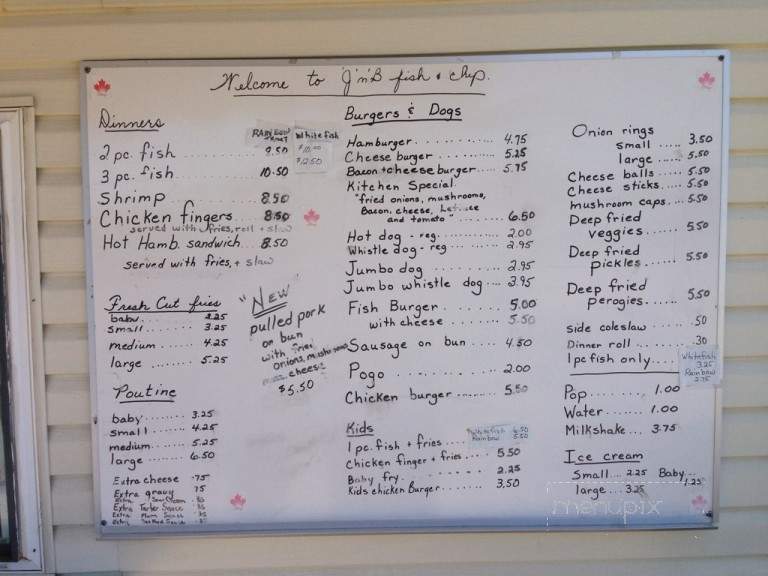 Welcome to J'n'B fish & chip.
Dinners
RAINBOW Whitefish
2 pc. fish 9.50 $10.00
$12.50
3 pc. fish 10.50
Shrimp 8.50
Chicken fingers 8.50
served with fries, roll + slaw
Hot Hamb. sandwich... 8.50
served with fries, + slaw
Fresh Cut fries
baby 2.25
small 3.25
medium 4.25
large 5.25
"NEW"
pulled pork
on bun
with fried
onions, mushrooms
cheese
$5.50
Poutine
baby 3.25
small 4.25
medium 5.25
large 6.50
Extra cheese .75
Extra gravy .75
Extra Sour Cream
Extra Tartar Sauce
Extra Plum Sauce
Extra Seafood Sauce
Burgers & Dogs
Hamburger 4.75
Cheese burger 5.25
Bacon + cheese burger 5.75
Kitchen Special
"fried onions, mushrooms,
Bacon, cheese, lettuce
and tomato" 6.50
Hot dog - reg 2.00
Whistle dog - reg 2.95
Jumbo dog 2.95
Jumbo whistle dog 3.95
Fish Burger 5.00
with cheese 5.50
Sausage on bun 4.50
Pogo 2.00
Chicken burger 5.50
Kids
1 pc. fish + fries Whitefish 6.50
Rainbow 5.50
Chicken finger + fries 5.50
Baby fry 2.25
Kids chicken Burger 3.50
Onion rings
small 3.50
large 5.50
Cheese balls 5.50
Cheese sticks 5.50
mushroom caps 5.50
Deep fried
veggies 5.50
Deep fried
pickles 5.50
Deep fried
perogies 5.50
side coleslaw .50
Dinner roll .30
1 pc fish only Whitefish
3.25
Rainbow
2.75
Pop 1.00
Water 1.00
Milkshake 3.75
Ice cream
Small 2.25 Baby 1.25
large 3.25
menupix